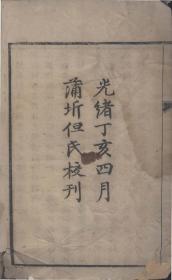 光緒丁亥四月
蒲圻但氏校刊